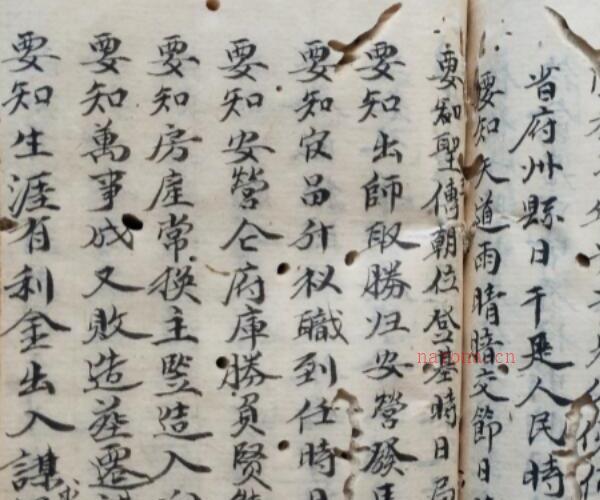 省府州縣日干是人民時
要知天道雨晴暗交節日
要知聖傳朝位登基時日局
要知出師取勝归安營發馬
要知官品升权職到任時日
要知安營仓府庫勝負賢
要知房產常换主監造入
要知萬事成又敗造基遷
要知生涯有利金出入謀
naromu.cn